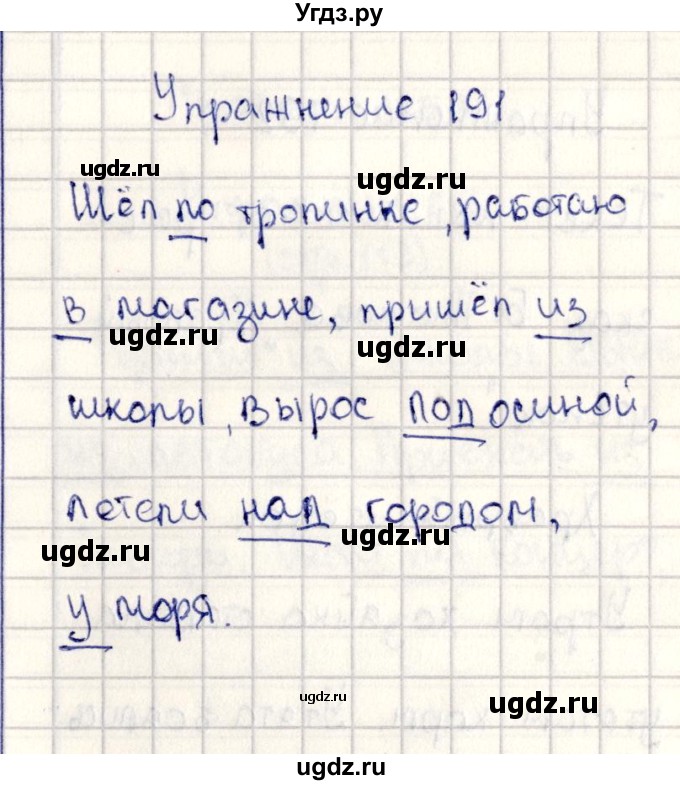 Угдз.ру
Упражнение 191
ugdz.ru
ugdz.ru
Шёл по тропинке, работаю
в магазине, пришёл из
ugdz.ru
ugdz.ru
школы, вырос под осиной,
летели над городом,
ugdz.ru
ugdz.ru
у моря.
ugdz.ru
ugdz.ru
ugdz.ru